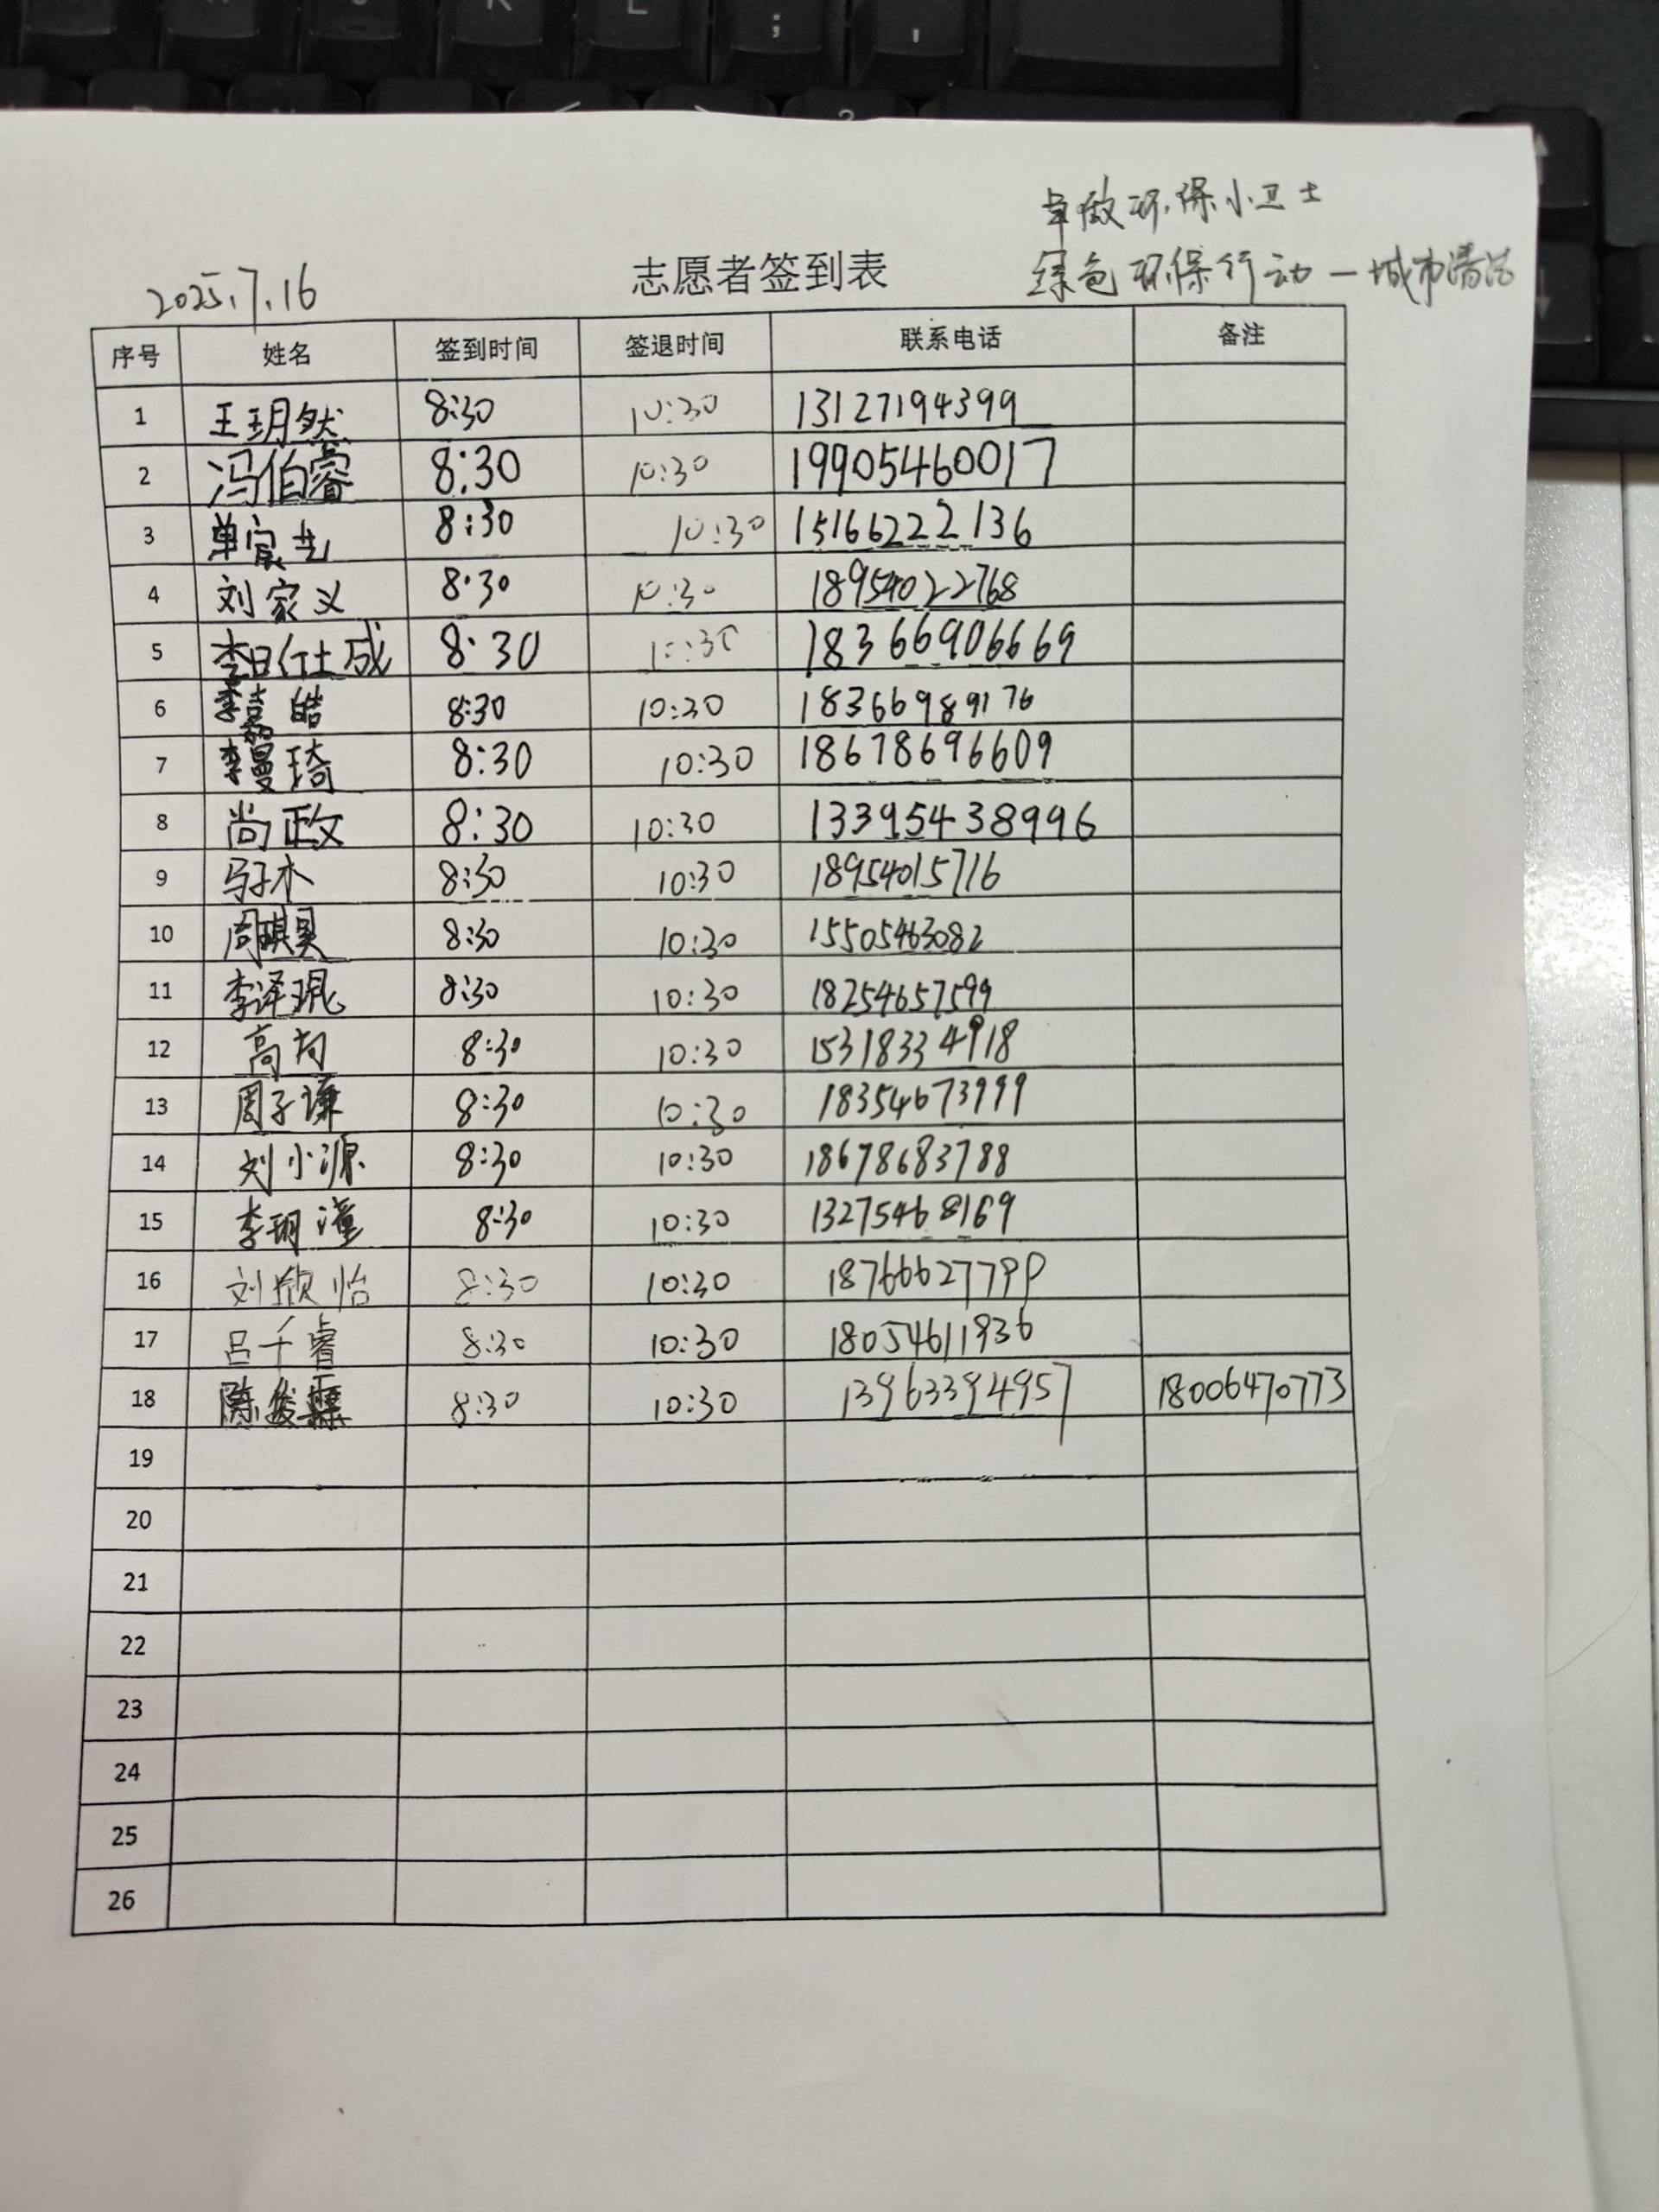 争做环保小卫士
绿色环保行动—城市清洁
2025.7.16
志愿者签到表
序号 姓名 签到时间 签退时间 联系电话 备注
1 王玥然 8:30 10:30 13127194399
2 冯伯睿 8:30 10:30 19905460017
3 单宸 8:30 10:30 15166222136
4 刘家义 8:30 10:30 18954022768
5 李日仕成 8:30 10:30 18366906669
6 李喆皓 8:30 10:30 18366989176
7 李曼琦 8:30 10:30 18678696609
8 尚政 8:30 10:30 13395438996
9 马子木 8:30 10:30 18954015716
10 周琪昊 8:30 10:30 15505463082
11 李泽琨 8:30 10:30 18254657599
12 高 8:30 10:30 15318334918
13 周子谦 8:30 10:30 18354673999
14 刘小源 8:30 10:30 18678683788
15 李玥潼 8:30 10:30 13275468169
16 刘欣怡 8:30 10:30 18766627799
17 吕千睿 8:30 10:30 18054611936
18 陈俊霖 8:30 10:30 13963394957 18006470773
19
20
21
22
23
24
25
26